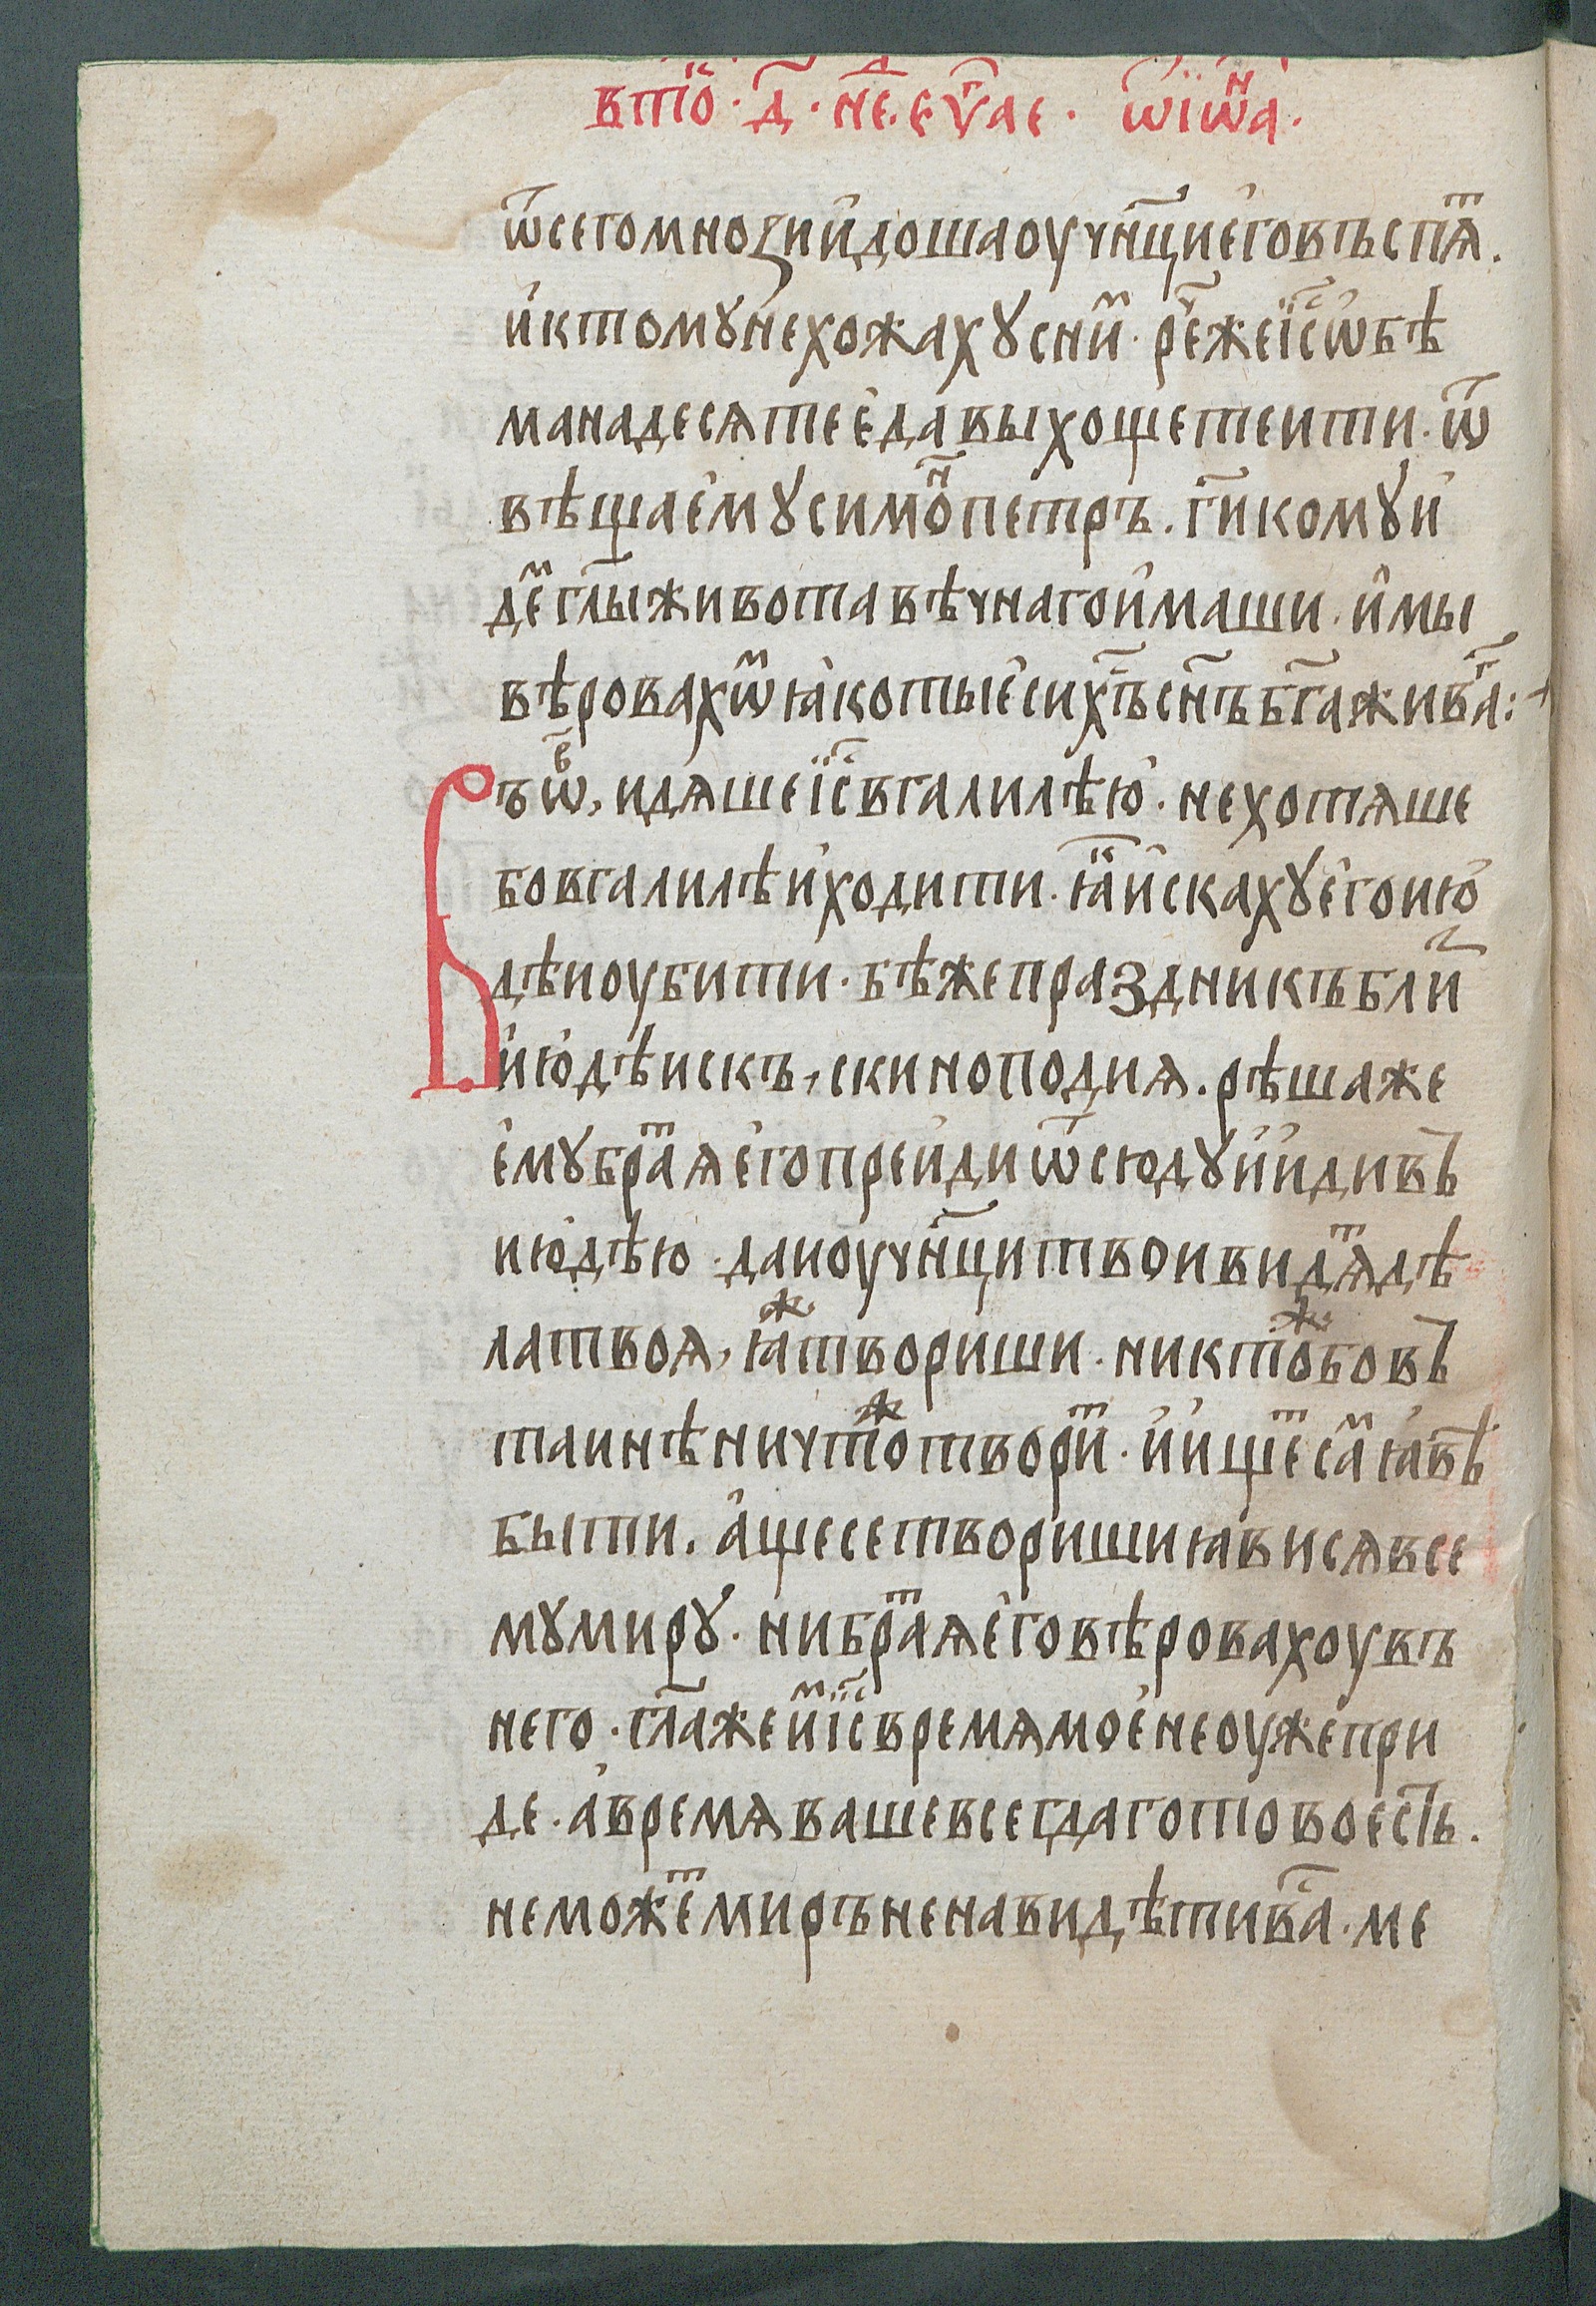 вто҇ⷦ · д҃ · нⷣе҃ · еѵⷢ҇ае · ѿ іѡⷩ҇а ·
ѿсегомноѕиидошаоучн҃циеговъспѧⷮ ·
иктомꙋнехожахꙋсниⷨ · реⷱ҇жеі҃сѡбѣ
манадесѧтееⷣавыхощетеити · ѿ
вѣщаемꙋсимоⷩпетръ · г҃икомꙋи
деⷨгл҃ыживотавѣчнагоимаши · имы
вѣровахѡⷨꙗкотыесих҃ъсн҃ъб҃гаживаⷢ҇ :
Въѡⷡ҇, идѧшеі҃свгалилѣю · нехотѧше
бовгалилѣиходити · ꙗⷦискахꙋегоию
дѣиоубити · бѣжепраздникъблиⷥ
июдѣискъ, скиноподиꙗ · рѣшаже
емꙋбраⷮѧегопреидиѿсюдꙋиидивъ
июдѣю · даиоучн҃цитвоивидѧⷮдѣ
латвоѧ, ꙗⷤтвориши · никтоⷤбовъ
таинѣничтоⷤтвориⷮ · иищеⷮсаⷨꙗвѣ
быти · ащесетворишиꙗвисѧвсе
мꙋмирꙋ · нибраⷮѧеговѣровахоувъ
него · гл҃ажеиⷨі҃свремѧмоенеоужепри
де · авремѧвашевсегдаготовоесть ·
неможеⷮмиръненавидѣтиваⷭ҇ · ме